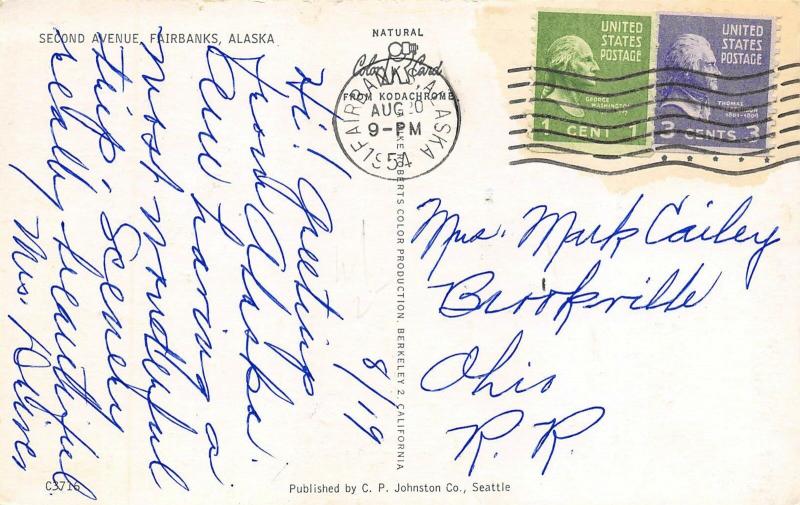 SECOND AVENUE, FAIRBANKS, ALASKA
NATURAL
Color Card
FROM KODACHROME
FAIRBANKS, ALASKA
AUG 20
9-PM
1954
UNITED
STATES
POSTAGE
GEORGE
WASHINGTON
1 CENT 1
UNITED
STATES
POSTAGE
THOMAS
JEFFERSON
1801-1809
3 CENTS 3
8/19
Hi! Greetings
from Alaska.
Am having a
most wonderful
trip. Scenery
really beautiful
Mrs.
MIKE ROBERTS COLOR PRODUCTION, BERKELEY 2, CALIFORNIA
Mrs. Mark Cailey
Brookville
Ohio
R. R.
C3716
Published by C. P. Johnston Co., Seattle